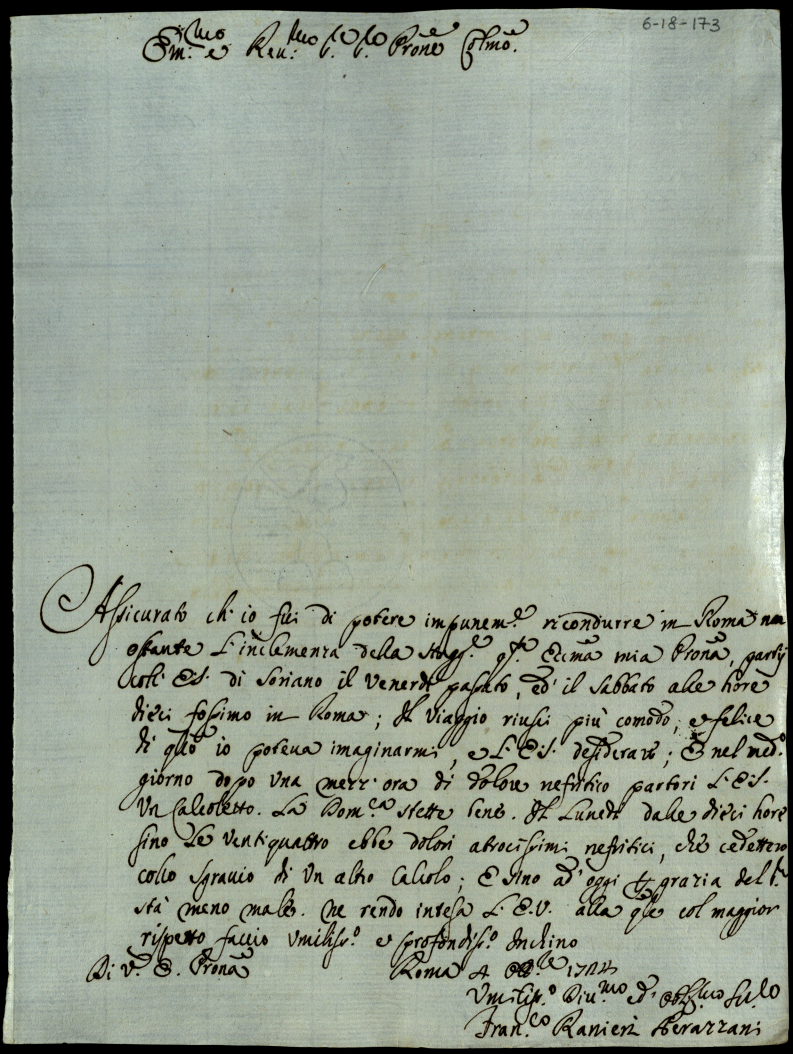 6-18-173
Em.^mo e Reu.^mo S.^e S.^e Prone Colmo.
Assicurato ch' io fui di potere impunem.^e ricondurre in Roma non
ostante l'inclemenza della Stag.^e q.^ta Eccma mia Prona, partij
coll' E.S. di Soriano il Venerdì passato, ed' il Sabbato alle hore
dieci fossimo in Roma; Il viaggio riuscì più comodo, e felice
di qllo io poteva imaginarmi, e L'E.S. desiderare; E nel med.^o
giorno dopo una mezz' ora di dolore nefritico partorì L'E.S.
Un Calcoletto. La Dom.^ca stette bene. Il Lunedì dalle dieci hore
sino le ventiquattro ebbe dolori atrocissimi nefritici, che cedettero
collo sgravio di un altro Calcolo; E sino ad' oggi per grazia del S.^re
stà meno male. Ne rendo intesa L'E.V. alla qle col maggior
rispetto faccio umiliss.^o e profondiss.^o Inchino
Di V.^a E. Prona Roma 4 1724
Umiliss.^o Diu.^mo ed' Obb.^mo Su.^lo
Fran.^co Ranieri